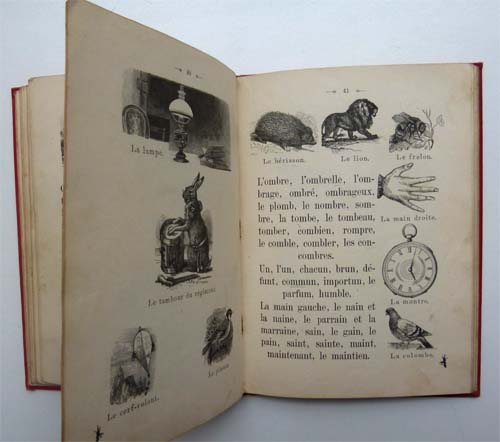 40
La lampe.
Le tambour du régiment
Le cerf-volant.
41
Le hérisson. Le lion. Le frelon.
L'ombre, l'ombrelle, l'om-
brage, ombré, ombrageux,
le plomb, le nombre, som-
bre, la tombe, le tombeau,
tomber, combien, rompre,
le comble, combler, les con-
combres.
Un, l'un, chacun, brun, dé-
funt, commun, importun, le
parfum, humble.
La main gauche, le nain et
la naine, le parrain et la
marraine, sain, le gain, le
pain, saint, sainte, maint,
maintenant, le maintien.
La main droite.
La montre.
La colombe.